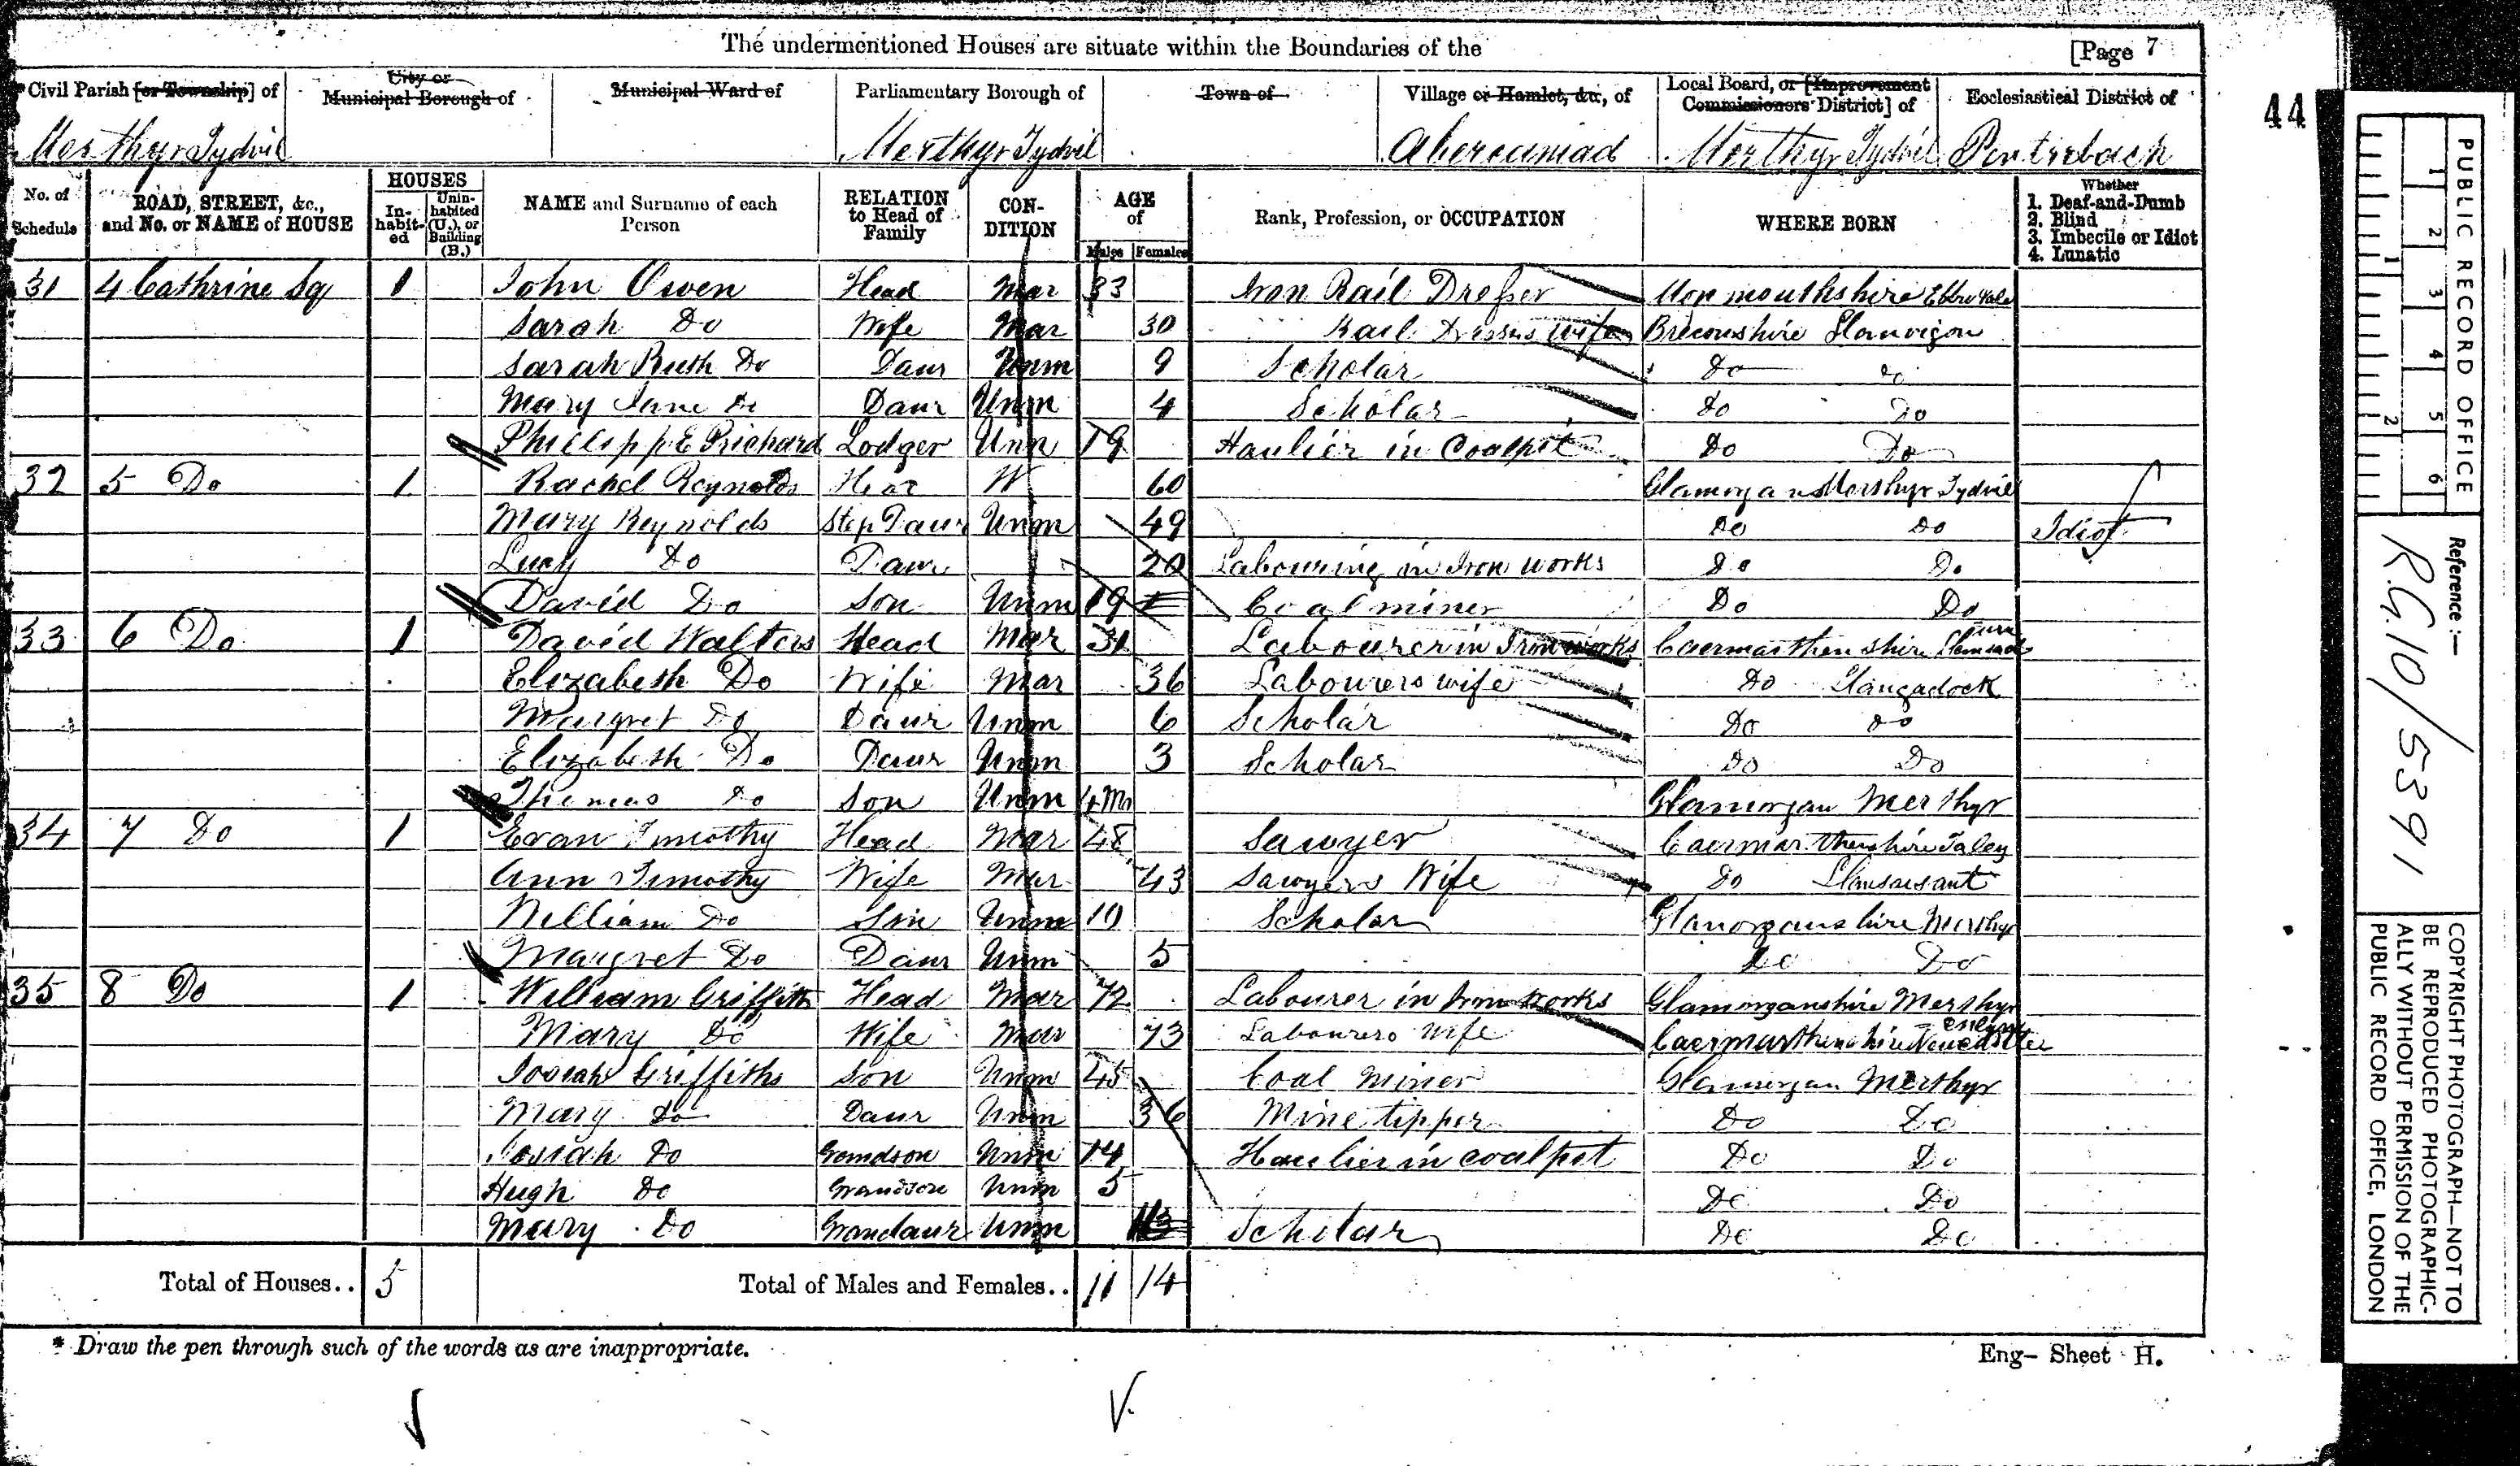 The undermentioned Houses are situate within the Boundaries of the [Page 7
Civil Parish [or Township] of City or Municipal Borough of Municipal Ward of Parliamentary Borough of Town of Village or Hamlet, &c., of Local Board, or [Improvement Commissioners District] of Ecclesiastical District of
Merthyr Tydvil Merthyr Tydvil Abercanaid Merthyr Tydvil Pentrebach
44
No. of Schedule ROAD, STREET, &c., and No. or NAME of HOUSE HOUSES In-habit-ed Unin-habited (U.), or Building (B.) NAME and Surname of each Person RELATION to Head of Family CON-DITION AGE of Males Females Rank, Profession, or OCCUPATION WHERE BORN Whether 1. Deaf-and-Dumb 2. Blind 3. Imbecile or Idiot 4. Lunatic
31 4 Cathrine Sq 1 John Owen Head Mar 33 Iron Rail Dresser Monmouthshire Ebbw Vale
Sarah Do Wife Mar 30 Rail Dressers Wife Breconshire
Sarah Ruth Do Daur Unm 9 Scholar Do do
Mary Jane Do Daur Unm 4 Scholar Do Do
Phillip E Prichard Lodger Unm 19 Haulier in Coalpit Do Do
32 5 Do 1 Rachel Reynolds Head W 60 Glamorgan Merthyr Tydvil
Mary Reynolds Step Daur Unm 49 Do Do Idiot
Lucy Do Daur 20 Labouring in Iron works Do Do
David Do Son Unm 19 Coalminer Do Do
33 6 Do 1 David Walters Head Mar 31 Labourer in Iron works Caermarthenshire
Elizabeth Do Wife Mar 36 Labourers wife Do Llangadock
Margret Do Daur Unm 6 Scholar Do do
Elizabeth Do Daur Unm 3 Scholar Do Do
Thomas Do Son Unm 4 Mo Glamorgan Merthyr
34 7 Do 1 Evan Timothy Head Mar 48 Sawyer Caermarthenshire Taley
Ann Timothy Wife Mar 43 Sawyers Wife Do
William Do Son Unm 10 Scholar Glamorganshire Merthyr
Margret Do Daur Unm 5 Do Do
35 8 Do 1 William Griffith Head Mar 72 Labourer in Iron Works Glamorganshire Merthyr
Mary Do Wife Mar 73 Labourers Wife Caermarthenshire Newcastle
Josiah Griffiths Son Unm 45 Coal Miner Glamorgan Merthyr
Mary do Daur Unm 36 Mine tipper Do Do
Josiah Do Grandson Unm 14 Haulier in coalpit Do Do
Hugh Do Grandson Unm 5 Do Do
Mary Do Grandaur Unm Scholar Do Do
Total of Houses.. 5 Total of Males and Females.. 11 14
* Draw the pen through such of the words as are inappropriate. Eng- Sheet H.
PUBLIC RECORD OFFICE
1 2 3 4 5 6
1 2
Reference :—
R.G. 10/5391
COPYRIGHT PHOTOGRAPH—NOT TO
BE REPRODUCED PHOTOGRAPHIC-
ALLY WITHOUT PERMISSION OF THE
PUBLIC RECORD OFFICE, LONDON